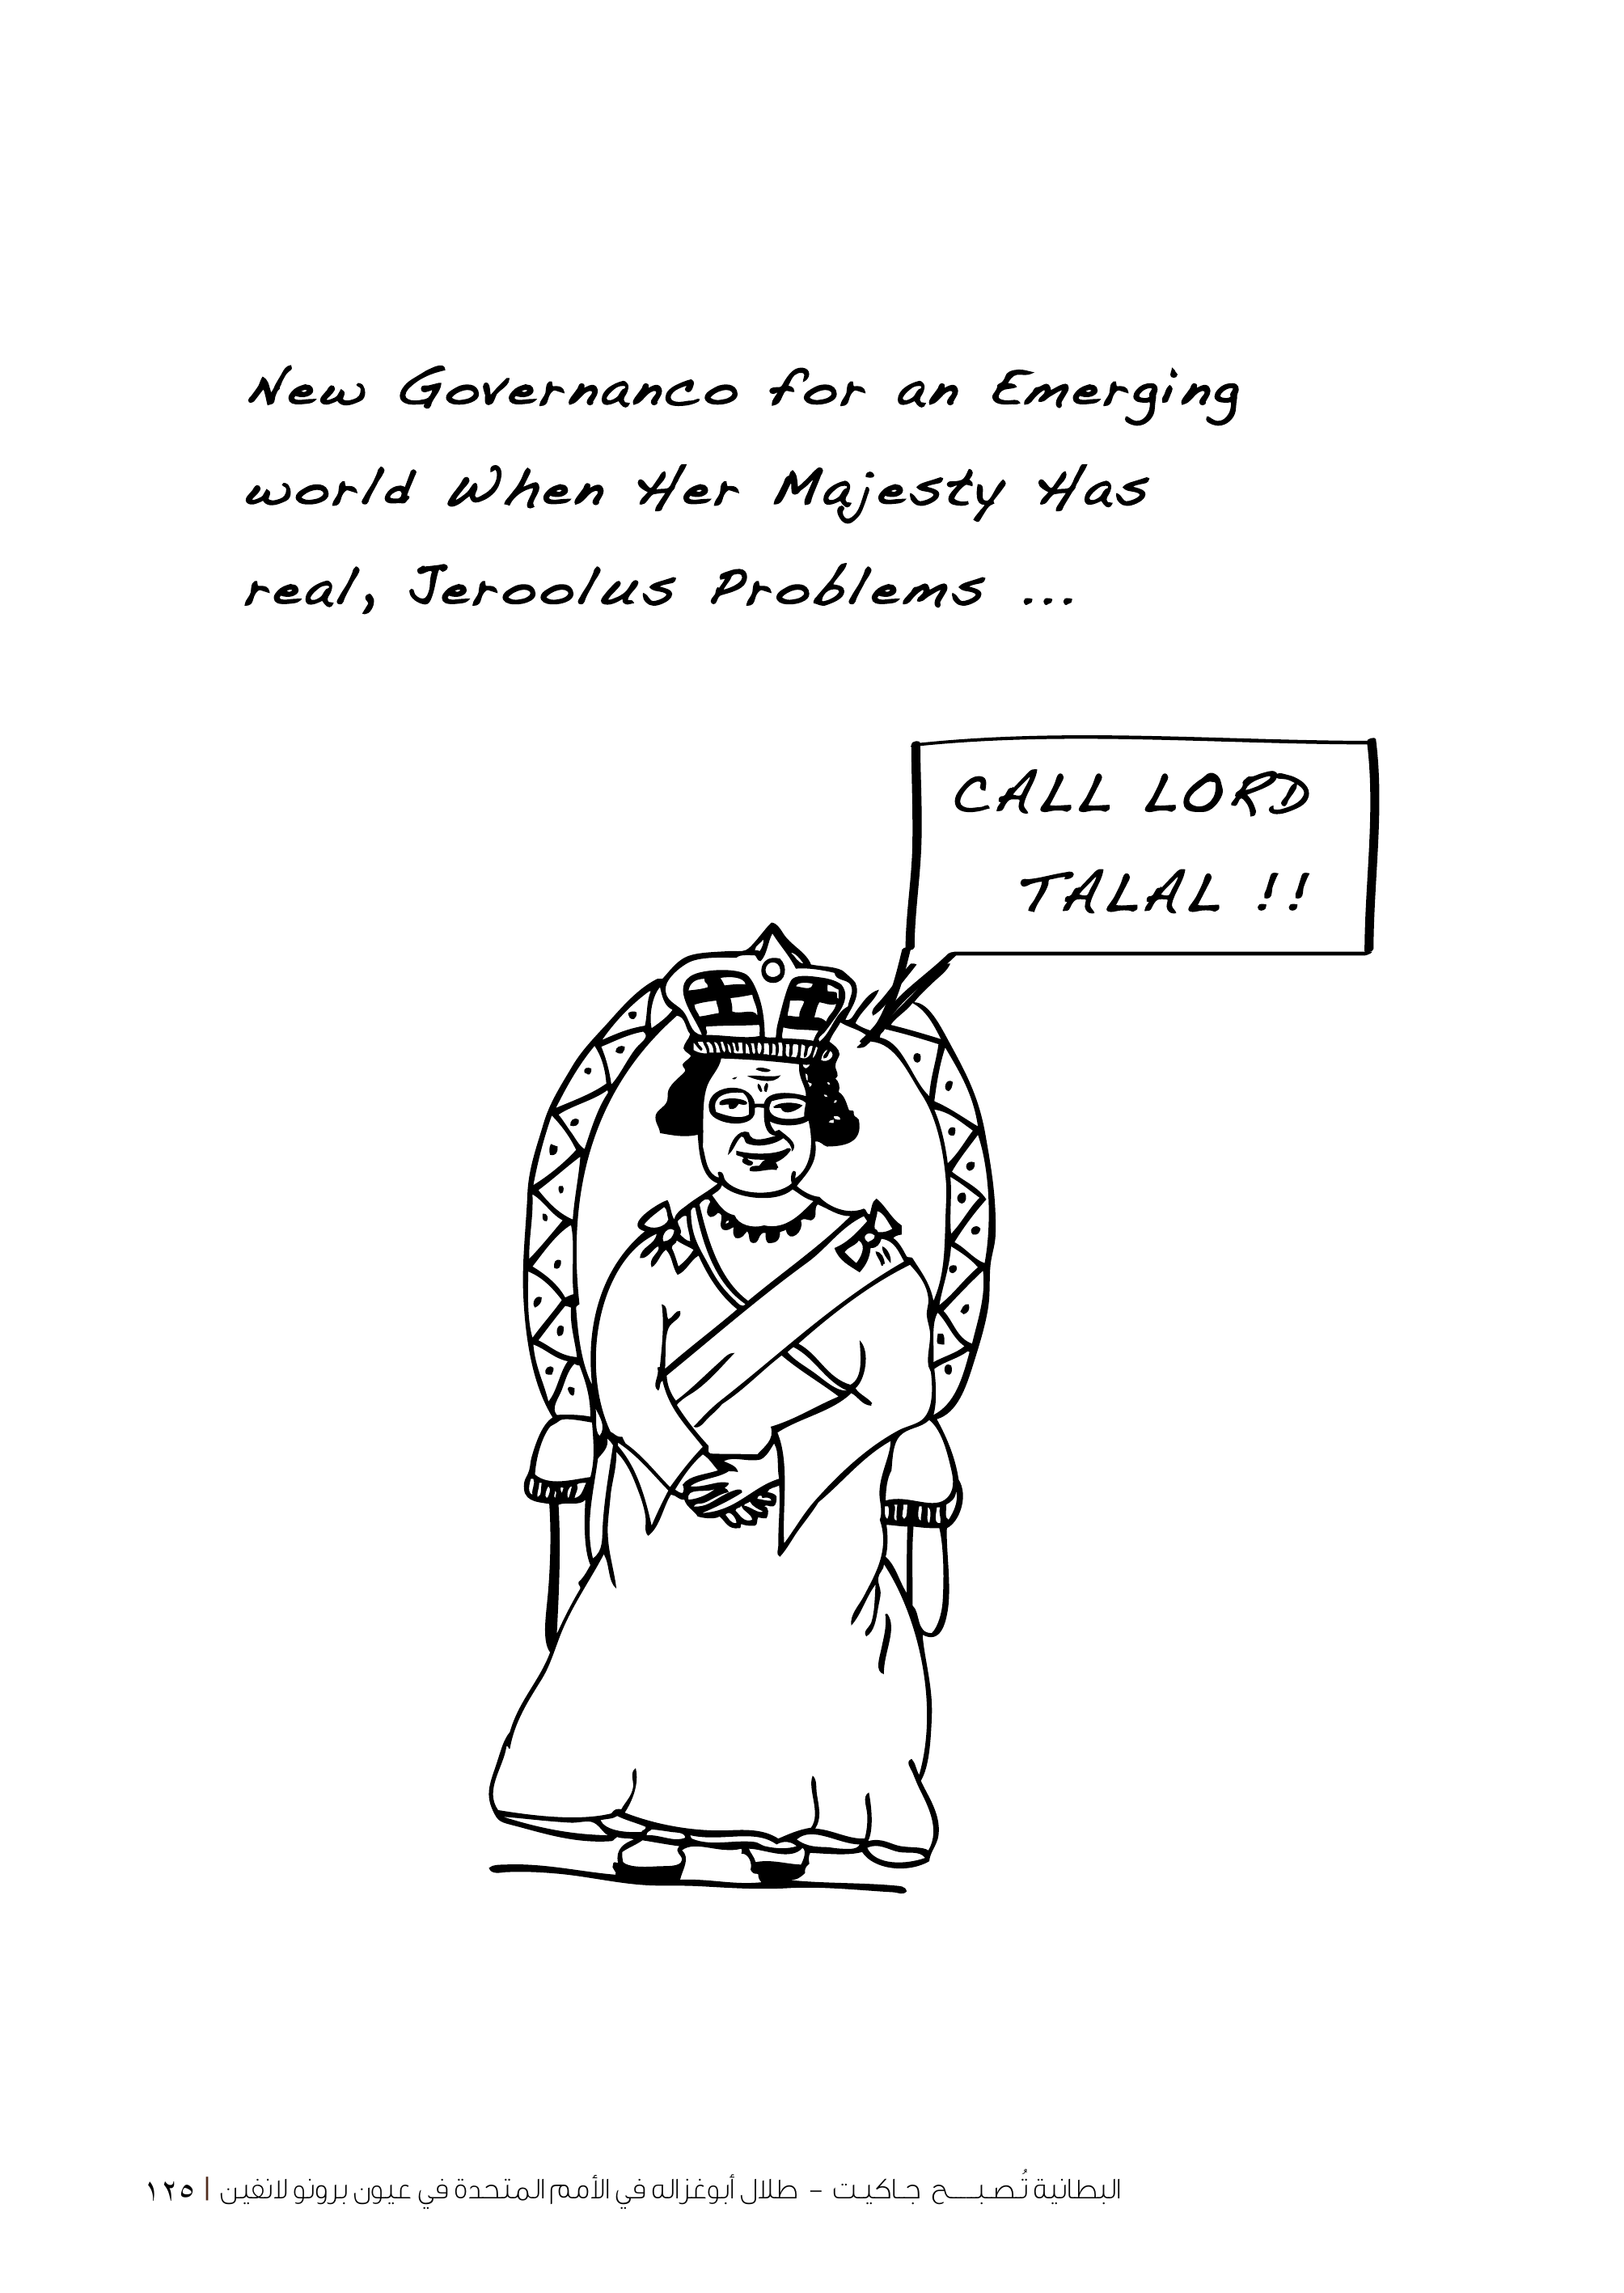 New Governanco for an Emerging
world When Her Majesty Has
real, Jeroolus Problems ...
CALL LORD
TALAL !!
البطانية تُصبح جاكيت - طلال أبوغزاله في الأمم المتحدة في عيون برونو لانفين | ١٢٥